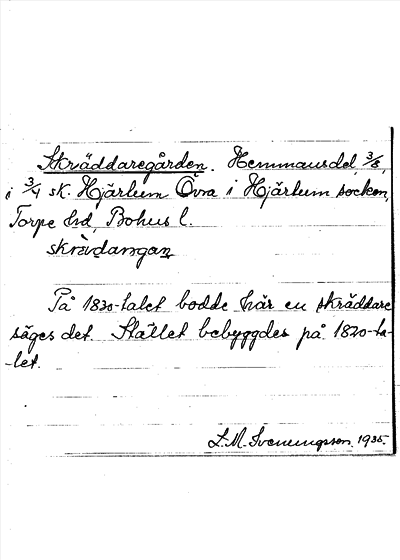 Skräddaregården. Hemmansdel, 3/8,
i 3/4 sk. Hjärtum Övra i Hjärtum socken,
Torpe hd, Bohus l.
skrädargan
På 1830-talet bodde här en skräddare
säges det. Stället bebyggdes på 1820-ta-
-let.
L. M. Svenungsson. 1935.